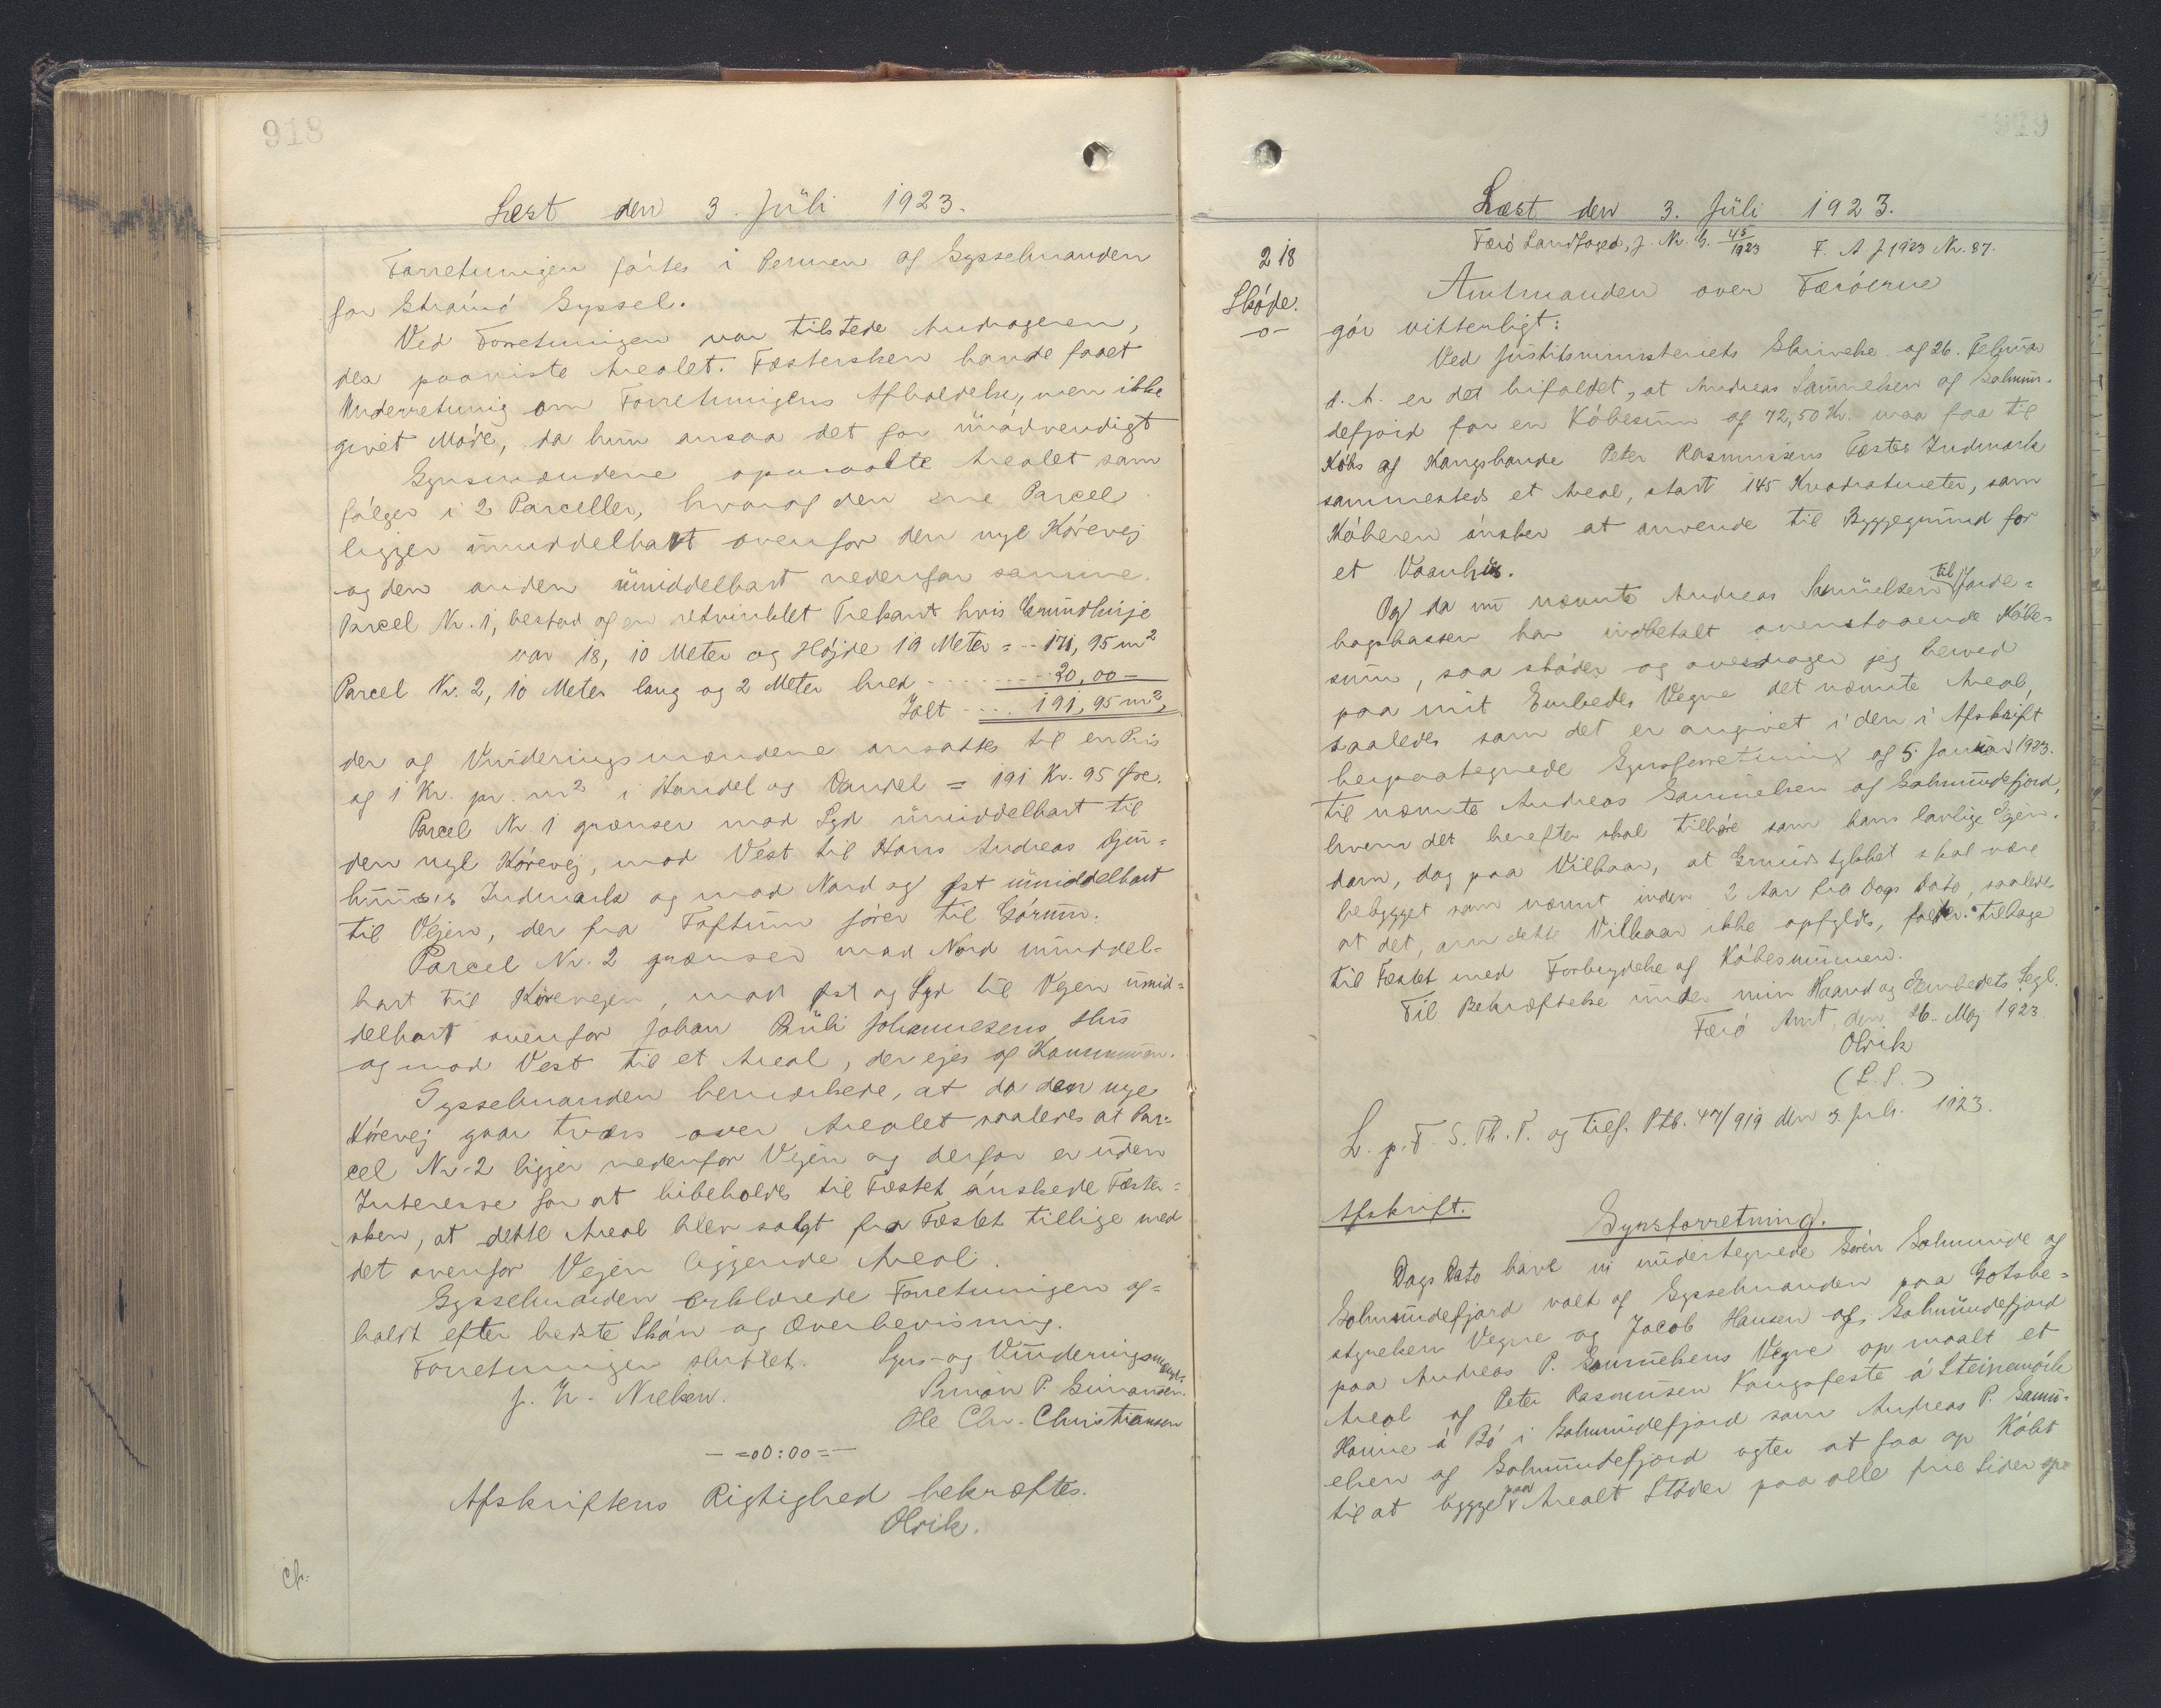 918
Læst den 3. Juli 1923.
Forretningen førtes i Pennen af Sysselmanden
for Strømø Syssel.
Ved Forretningen var tilstede Andrageren,
der paaviste Arealet. Fæstersken havde faaet
Underretning om Forretningens Afholdelse, men ikke
givet Møde, da hun ansaa det for unødvendigt
Synsmændene opmaalte Arealet som
følger i 2 Parceller, hvoraf den ene Parcel
ligger umiddelbart ovenfor den nye Kørevej
og den anden umiddelbart nedenfor samme.
Parcel Nr. 1, bestod af en retvinklet Trekant hvis Grundlinje
var 18,10 Meter og Højde 19 Meter = -- 171,95 m²
Parcel Nr. 2, 10 Meter lang og 2 Meter bred - - - - - 20,00 -
Ialt - - - 191,95 m²,
der af Vurderingsmændene ansattes til en Pris
af 1 Kr. pr. m² i Handel og Vandel = 191 Kr. 95 Øre.
Parcel Nr. 1 grænser mod Syd umiddelbart til
den nye Kørevej, mod Vest til Hans Andreas Djur-
huus's Indmark og mod Nord og Øst umiddelbart
til Vejen, der fra Toftum fører til Górum.
Parcel Nr. 2 grænser mod Nord umiddel-
bart til Kørevejen, mod Øst og Syd til Vejen umid-
delbart ovenfor Johan Pauli Johannesens Hus
og mod Vest til et Areal, der ejes af Kommunen.
Sysselmanden bemærkede, at da den nye
Kørevej gaar tværs over Arealet saaledes at Par-
cel Nr. 2 ligger nedenfor Vejen og derfor er uden
Interesse for at bibeholdes til Fæstet ønskede Fæster-
sken, at dette Areal blev solgt fra Fæstet tillige med
det ovenfor Vejen liggende Areal.
Sysselmanden erklærede Forretningen af-
holdt efter bedste Skøn og Overbevisning.
Forretningen sluttet. Syns- og Vurderingsmænd.
J. H. Nielsen. Simon P. Simonsen.
Ole Chr. Christiansen
- =00:00= -
Afskriftens Rigtighed bekræftes.
Olrik.
919
Læst den 3. Juli 1923.
218
Skøde.
-o-
Færø Landfoged, J. Nr. G. 45/1923 F. A. J. 1923 Nr. 87.
Amtmanden over Færøerne
gør vitterligt:
Ved Justitsministeriets Skrivelse af 26. Februar
d. A. er det bifaldet, at Andreas Samuelsen af Solmun-
defjord for en Købesum af 72,50 Kr. maa faa til
Købs af Kongsbonde Peter Rasmussens Fæstes Indmark
sammesteds et Areal, stort 145 Kvadratmeter, som
Køberen ønsker at anvende til Byggegrund for
et Vaanhus.
Og da nu nævnte Andreas Samuelsen til Jorde-
bogskassen har indbetalt ovenstaaende Købe-
sum, saa skøder og overdrager jeg herved
paa mit Embedes Vegne det nævnte Areal,
saaledes som det er angivet i den i Afskrift
herpaategnede Synsforretning af 5. Januar 1923.
til nævnte Andreas Samuelsen af Solmundefjord,
hvem det herefter skal tilhøre som hans lovlige Ejen-
dom, dog paa Vilkaar, at Grundstykket skal være
bebygget som nævnt inden 2 Aar fra Dags Dato, saaledes
at det, om dette Vilkaar ikke opfyldes, falder tilbage
til Fæstet med Forbrydelse af Købesummen.
Til Bekræftelse under min Haand og Embedets Segl.
Færø Amt, den 16. Maj 1923
Olrik
(L.S.)
L. p. F. S. Th. T. og tilf. Ptb. 47/919 den 3. Juli 1923.
Afskrift.
Synsforretning.
Dags Dato have vi undertegnede Sørin Solmunde af
Solmundefjord valt af Sysselmanden paa Gotsbe-
styrelsen Vegne og Jacob Hansen af Solmundefjord
paa Andreas P. Samuelsens Vegne opmaalt et
Areal af Peter Rasmussen Kongsfeste á Steinamörk
á Bö i Solmundefjord som Andreas P. Samu-
elsen af Solmundefjord agter at faa op Købt
til at bygge paa Arealt Støder paa alle fire Sider op